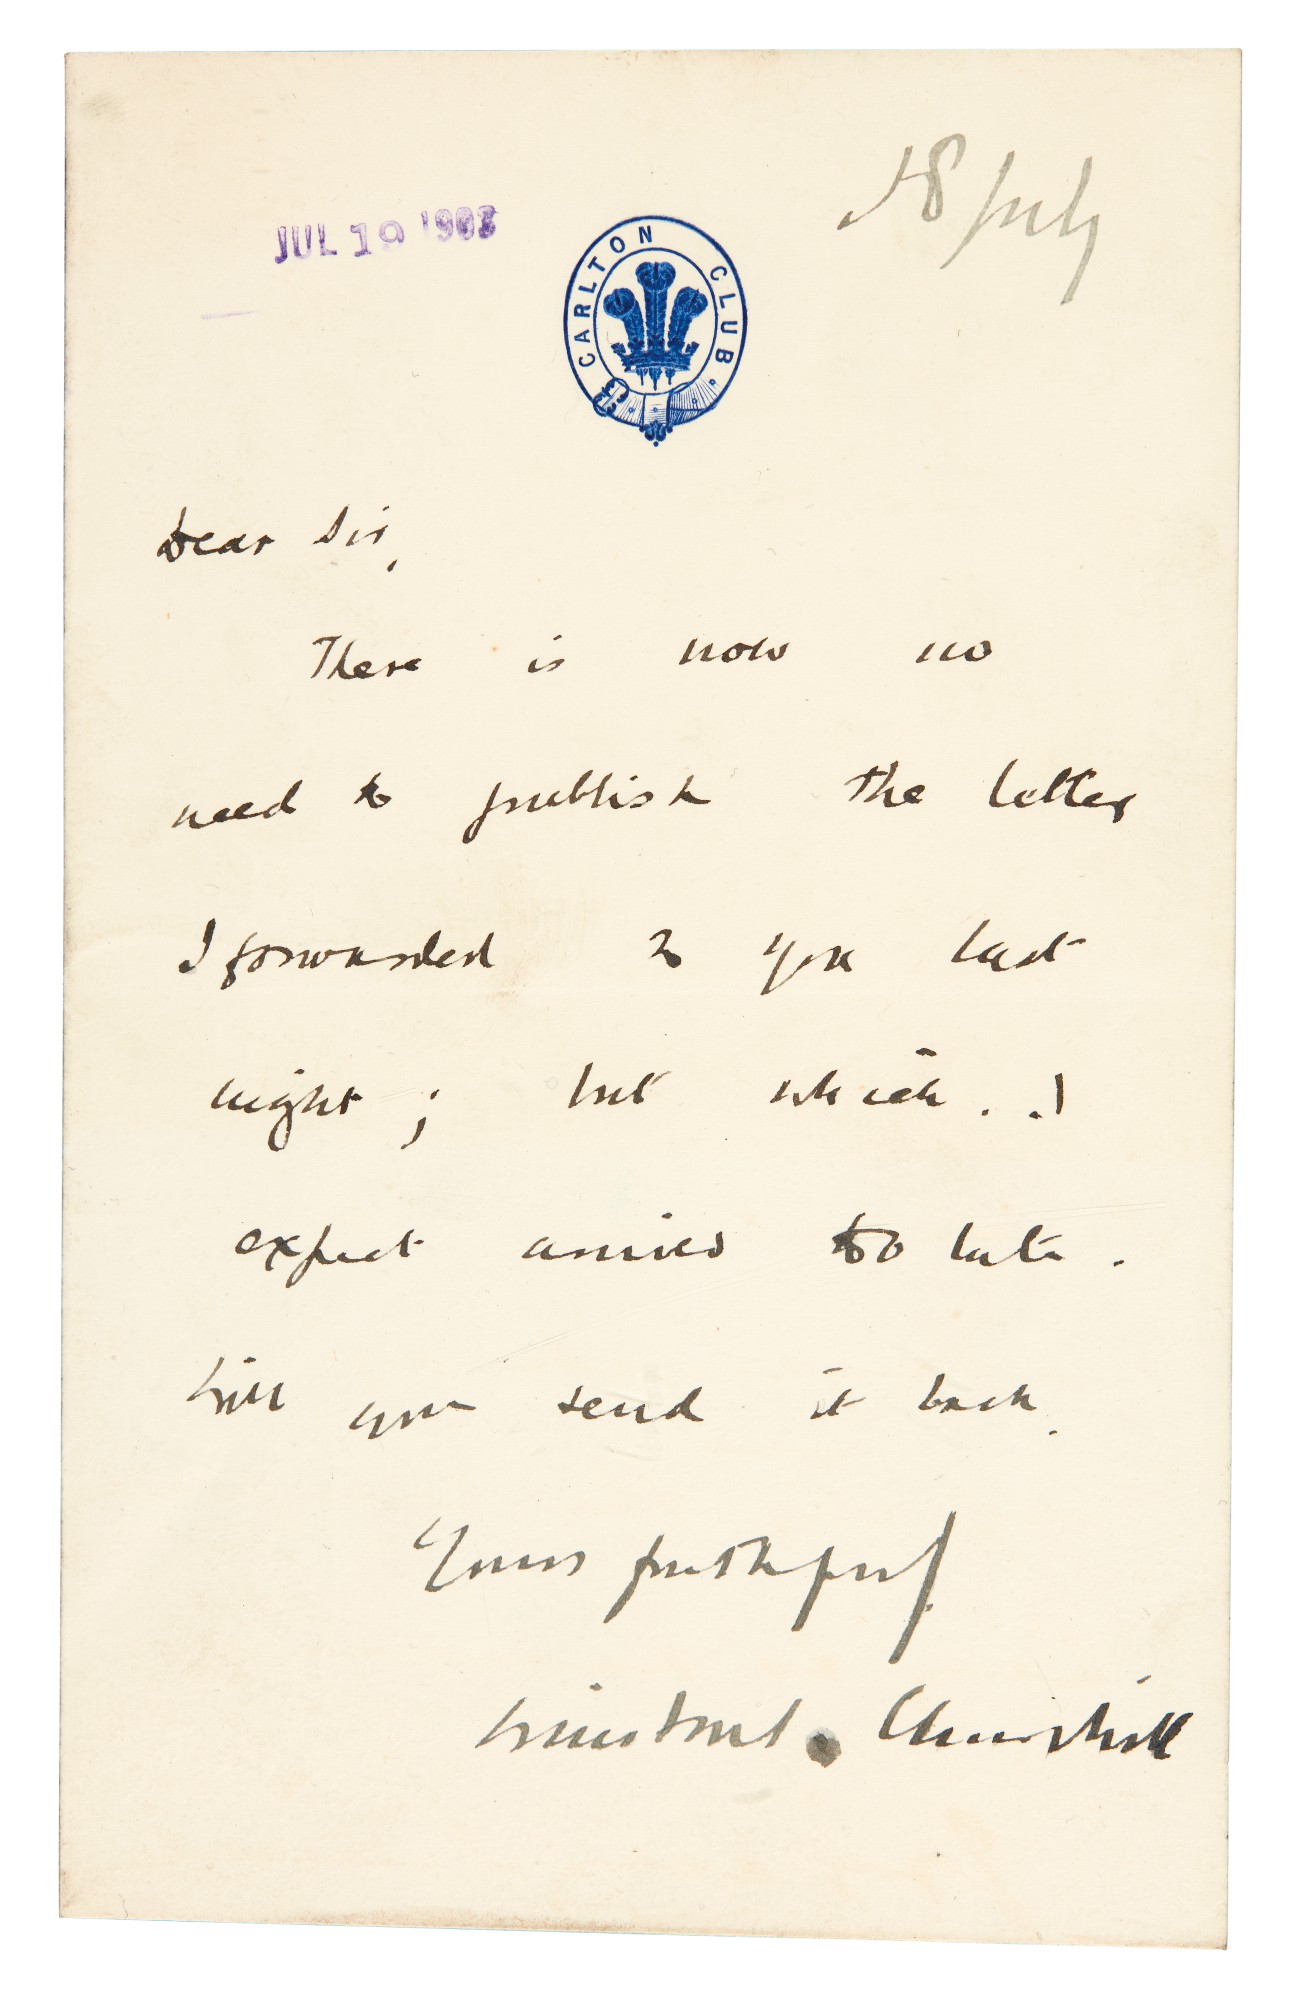 18 July
JUL 19 1903
CARLTON CLUB
Dear Sir,
There is now no
need to publish the letter
I forwarded to you last
night; but which . . I
expect arrived too late.
Will you send it back.
Yours faithfully
Winston S. Churchill